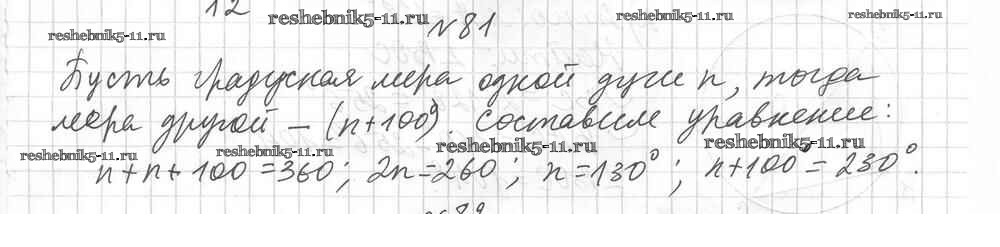 12
reshebnik5-11.ru
reshebnik5-11.ru
reshebnik5-11.ru
reshebnik5-11.ru
№81
Пусть градусная мера одной дуги n, тогда
мера другой – (n+100°). Составим уравнение:
reshebnik5-11.ru
reshebnik5-11.ru
reshebnik5-11.ru
reshebnik5-11.ru
n+n+100=360; 2n=260; n=130°; n+100°=230°.